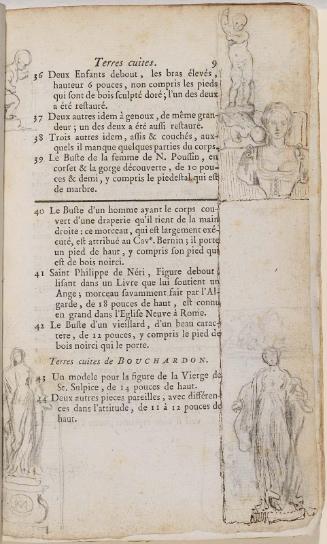 Terres cuites. 9
36 Deux Enfants debout, les bras élevés,
hauteur 6 pouces, non compris les pieds
qui sont de bois sculpté doré; l'un des deux
a été restauré.
37 Deux autres idem à genoux, de même gran-
deur; un des deux a été aussi restauré.
38 Trois autres idem, assis & couchés, aux-
quels il manque quelques parties du corps.
39 Le Buste de la femme de N. Poussin, en
corset & la gorge découverte, de 10 pou-
ces & demi, y compris le piedestal qui est
de marbre.
40 Le Buste d'un homme ayant le corps cou-
vert d'une draperie qu'il tient de la main
droite: ce morceau, qui est largement exé-
cuté, est attribué au Cavr. Bernin; il porte
un pied de haut, y compris son pied qui
est de bois noirci.
41 Saint Philippe de Néri, Figure debout,
lisant dans un Livre que lui soutient un
Ange; morceau savamment fait par l'Al-
garde, de 18 pouces de haut, est connu
en grand dans l'Eglise Neuve à Rome.
42 Le Buste d'un vieillard, d'un beau carac-
tere, de 12 pouces, y compris le pied de
bois noirci qui le porte.
Terres cuites de BOUCHARDON.
43 Un modele pour la figure de la Vierge de
St. Sulpice, de 14 pouces de haut.
44 Deux autres pieces pareilles, avec différen-
ces dans l'attitude, de 11 à 12 pouces de
haut.